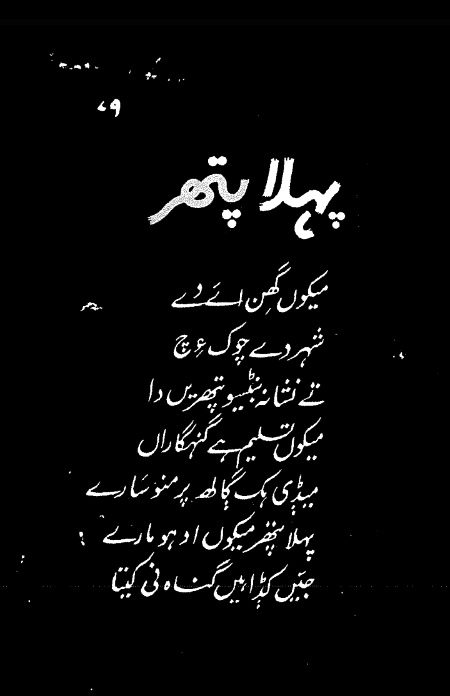 ۷۹
پہلا پتھر
میکوں گھن اے دے
شہر دے چوک ءچ
تے نشانہ بݨیسو پتھریں دا
میکوں تسلیم ہے گنہگاراں
میݙی ہک ڳالھ پر منو سارے
پہلا پتھر میکوں او ہو مارے
جئیں کݙاہیں گناہ نی کیتا